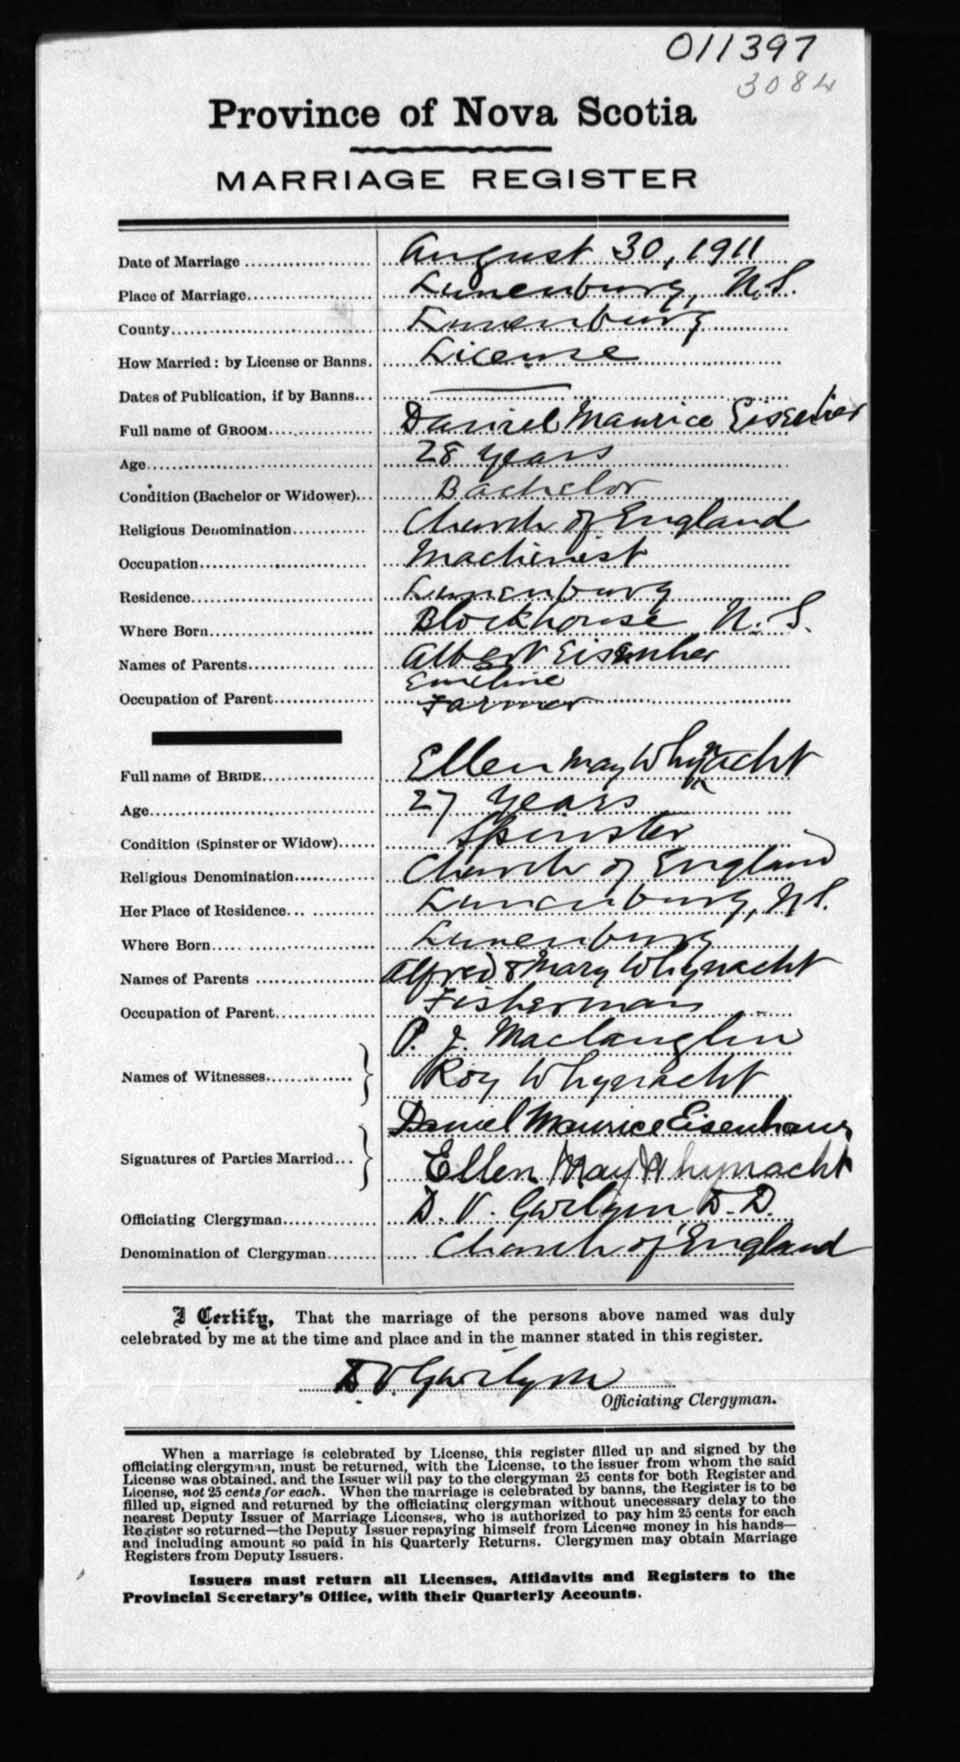 011397
3084
Province of Nova Scotia
MARRIAGE REGISTER
Date of Marriage August 30, 1911
Place of Marriage Lunenburg, N.S.
County Lunenburg
How Married: by License or Banns. License
Dates of Publication, if by Banns
Full name of GROOM Daniel Maurice
Age 28 years
Condition (Bachelor or Widower) Bachelor
Religious Denomination Church of England
Occupation Machinist
Residence Lunenburg
Where Born Blockhouse N. S.
Names of Parents Albert
Emeline
Occupation of Parent Farmer
Full name of BRIDE Ellen May Whynacht
Age 27 years
Condition (Spinster or Widow) Spinster
Religious Denomination Church of England
Her Place of Residence Lunenburg, N.S.
Where Born Lunenburg
Names of Parents Alfred & Mary Whynacht
Occupation of Parent Fisherman
P. J. Maclauglin
Names of Witnesses Roy Whynacht
Daniel Maurice Eisenhaur
Signatures of Parties Married Ellen May Whynacht
Officiating Clergyman D. V. Gwilym, D.D.
Denomination of Clergyman Church of England
I Certify, That the marriage of the persons above named was duly
celebrated by me at the time and place and in the manner stated in this register.
D. V. Gwilym
Officiating Clergyman.
When a marriage is celebrated by License, this register filled up and signed by the
officiating clergyman, must be returned, with the License, to the issuer from whom the said
License was obtained, and the Issuer will pay to the clergyman 25 cents for both Register and
License, not 25 cents for each. When the marriage is celebrated by banns, the Register is to be
filled up, signed and returned by the officiating clergyman without unecessary delay to the
nearest Deputy Issuer of Marriage Licenses, who is authorized to pay him 25 cents for each
Register so returned—the Deputy Issuer repaying himself from License money in his hands—
and including amount so paid in his Quarterly Returns. Clergymen may obtain Marriage
Registers from Deputy Issuers.
Issuers must return all Licenses, Affidavits and Registers to the
Provincial Secretary's Office, with their Quarterly Accounts.